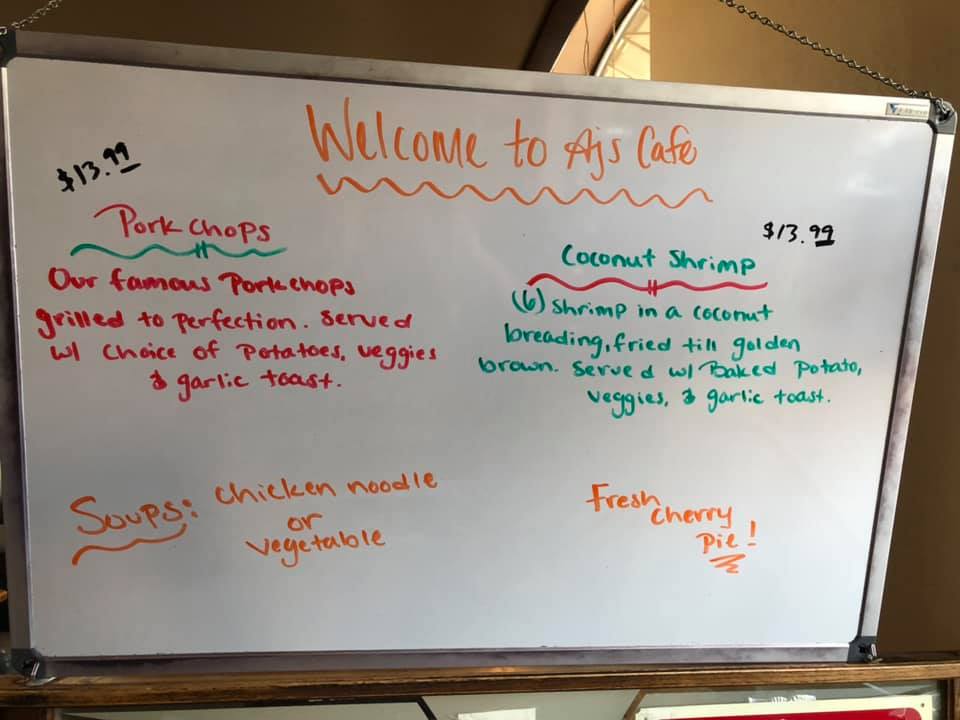 Welcome to Ajs Cafe
$13.99
Pork Chops
Our famous Porkchops
grilled to perfection. Served
w/ choice of potatoes, veggies
& garlic toast.
$13.99
Coconut Shrimp
(6) Shrimp in a coconut
breading, fried till golden
brown. Served w/ Baked Potato,
veggies, & garlic toast.
Soups: chicken noodle
or
vegetable
Fresh
cherry
pie!